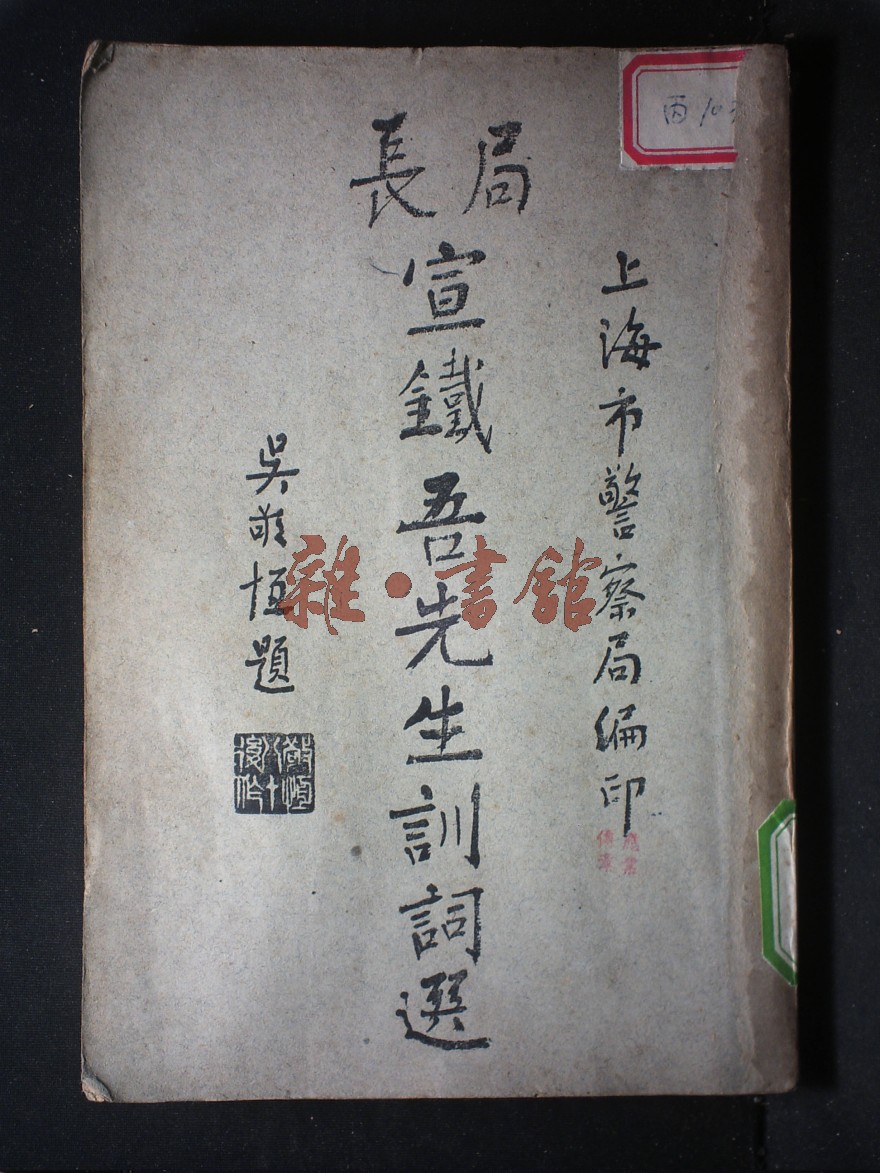 丙10
上海市警察局編印
局長
宣鐵吾先生訓詞選
吳敬恆題
敬恆八十後作
雜·書館